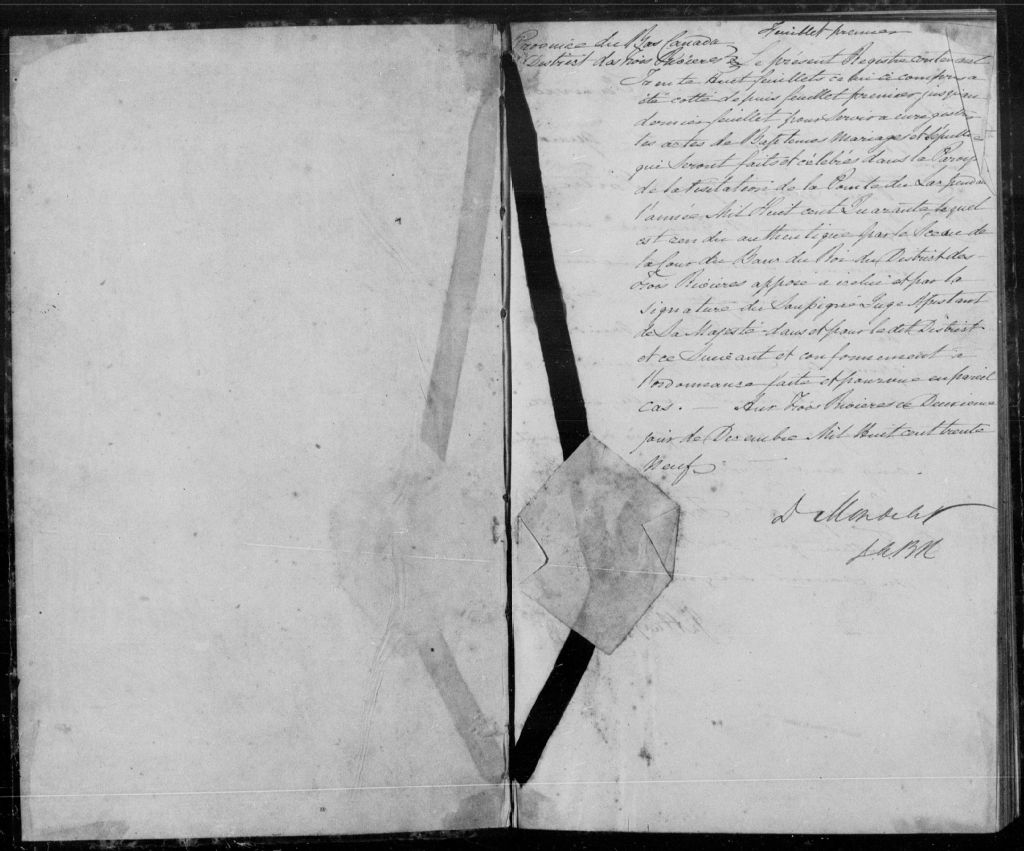 Feuillet premier
Province du Bas Canada
District des Trois Rivieres
Le présent Registre contenant
Trente Huit feuillets celui ci compris a
été cotté depuis feuillet premier jusqu'au
dernier feuillet pour servir a enregistrer
les actes de Baptemes Mariages et Sépultures
qui seront faits et célébrés dans la Paroisse
de la Visitation de la Pointe du Lac pendant
l'année Mil Huit cent Quarante, lequel
est rendu authentique par le Sceau de
la Cour du Banc du Roi du District des
Trois Rivieres apposé a icelui et par la
signature du Soussigné Juge Assistant
de Sa Majesté dans et pour le dit District
et ce suivant et conformement a
l'ordonnance faite et pourvue en pareil
cas. — Aux Trois Rivieres ce Deuxieme
jour de Decembre Mil Huit cent trente
Neuf
D Mondelet
J.A.B.R